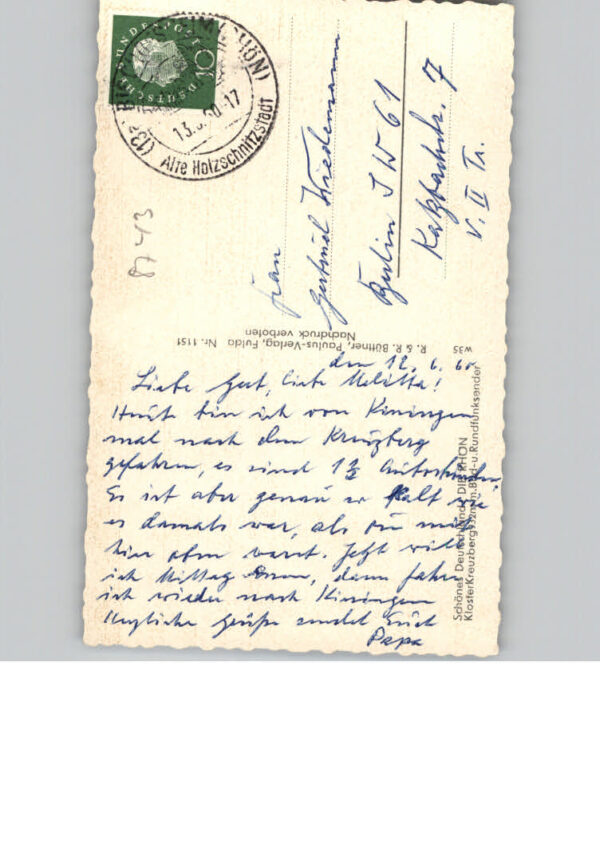 DEUTSCHE BUNDESPOST
10
BISCHOFSHEIM (RHÖN)
13. 60-17
Alte Holzschnitzstadt
8743
Frau
Gertrud Wiedemann
Berlin SW 61
Katzbachstr. 7
v. II Tr.
R. & R. Büttner, Paulus-Verlag, Fulda Nr. 1151
Nachdruck verboten
W35
Schönes Deutschland: DIE RHÖN
Kloster Kreuzberg m. Bild- u. Rundfunksender
den 12. 6. 60
Liebe Gert, liebe Melitta!
Heute bin ich von Kissingen
mal nach dem Kreuzberg
gefahren, es sind 1½ Autostunden
Es ist aber genau so kalt wie
es damals war, als Du mit
hier oben warst. Jetzt will
ich Mittag essen, dann fahre
ich wieder nach Kissingen
Herzliche Grüße sendet Euch
Papa